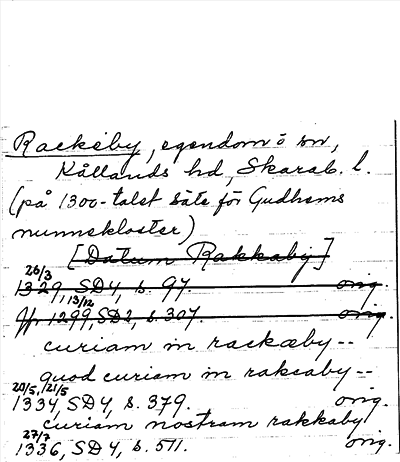 Rackeby, egendom o sn,
Kållands hd, Skarab. l.
(på 1300-talet säte för Gudhems
nunnekloster)
[Datum Rakkaby]
26/3
1329, SD 4, s. 97. orig.
13/12
Jfr 1299, SD 2, s. 307. orig.
curiam in rackæby --
quod curiam in raksaby --
20/5, 21/5
1334, SD 4, s. 379. orig.
curiam nostram rakkaby
27/7
1336, SD 4, s. 511. orig.